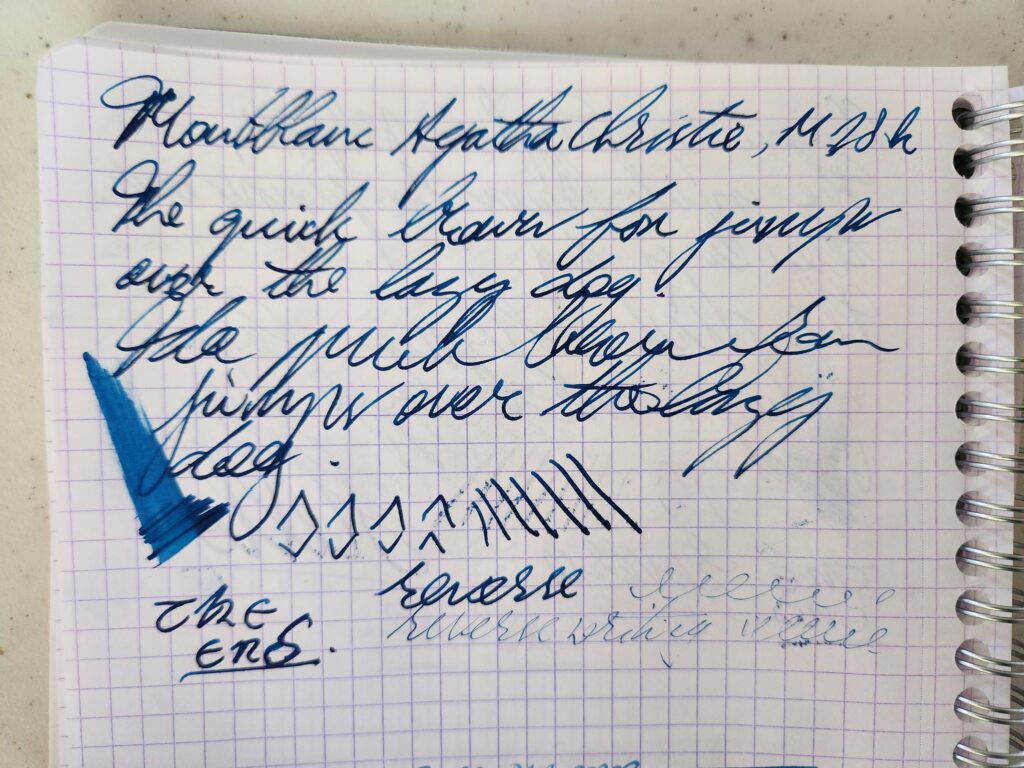 Montblanc Agatha Christie, M 18k
The quick brown fox jumps
over the lazy dog.
jumps over the lazy
dog.
reverse
reverse writing
THE
END.